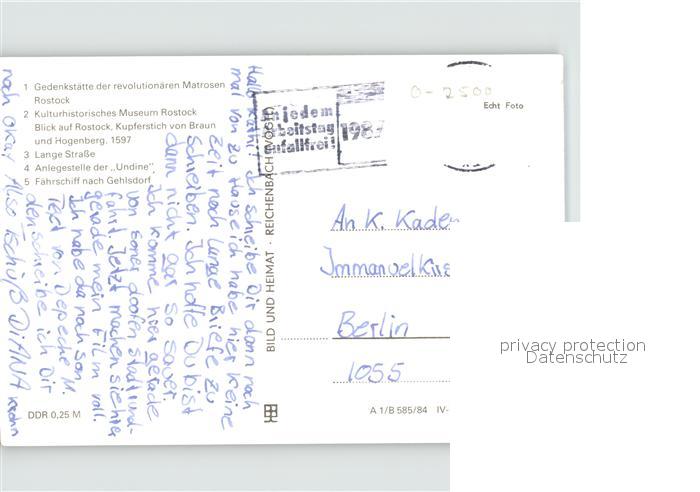 1 Gedenkstätte der revolutionären Matrosen
Rostock
2 Kulturhistorisches Museum Rostock
Blick auf Rostock, Kupferstich von Braun
und Hogenberg. 1597
3 Lange Straße
4 Anlegestelle der „Undine"
5 Fährschiff nach Gehlsdorf
Hallo Kathi! Ich schreibe Dir dann noch
mal von zu Hause ich habe hier keine
Zeit noch lange Briefe zu
schreiben. Ich hoffe Du bist
dann nicht gar so sauer.
Ich komme hier gerade
von einer doofen Stadtrund-
fahrt. Jetzt machen sie hier
gerade mein Film voll.
Ich habe da noch son
Text von Depeche M.
den schreibe ich Dir
noch okay Also Tschüß DiANA
BILD UND HEIMAT · REICHENBACH (VOGTL)
In jedem
Arbeitstag
unfallfrei!
1987
0-2500
Echt Foto
An K. Kade
Immanuelkir
Berlin
1055
DDR 0,25 M
A 1/B 585/84 IV-
privacy protection
Datenschutz